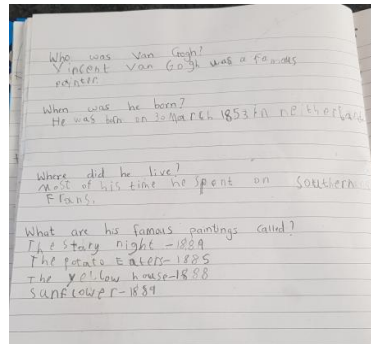 Who was Van Gogh?
Vincent Van Gogh was a famous
painter
When was he born?
He was born on 30 March 1853 in neitherland
Where did he live?
most of his time he spent on Southern
Frans.
What are his famous paintings called?
The stary night - 1889
The potato Eaters - 1885
The yellow house - 1888
Sunflower - 1889